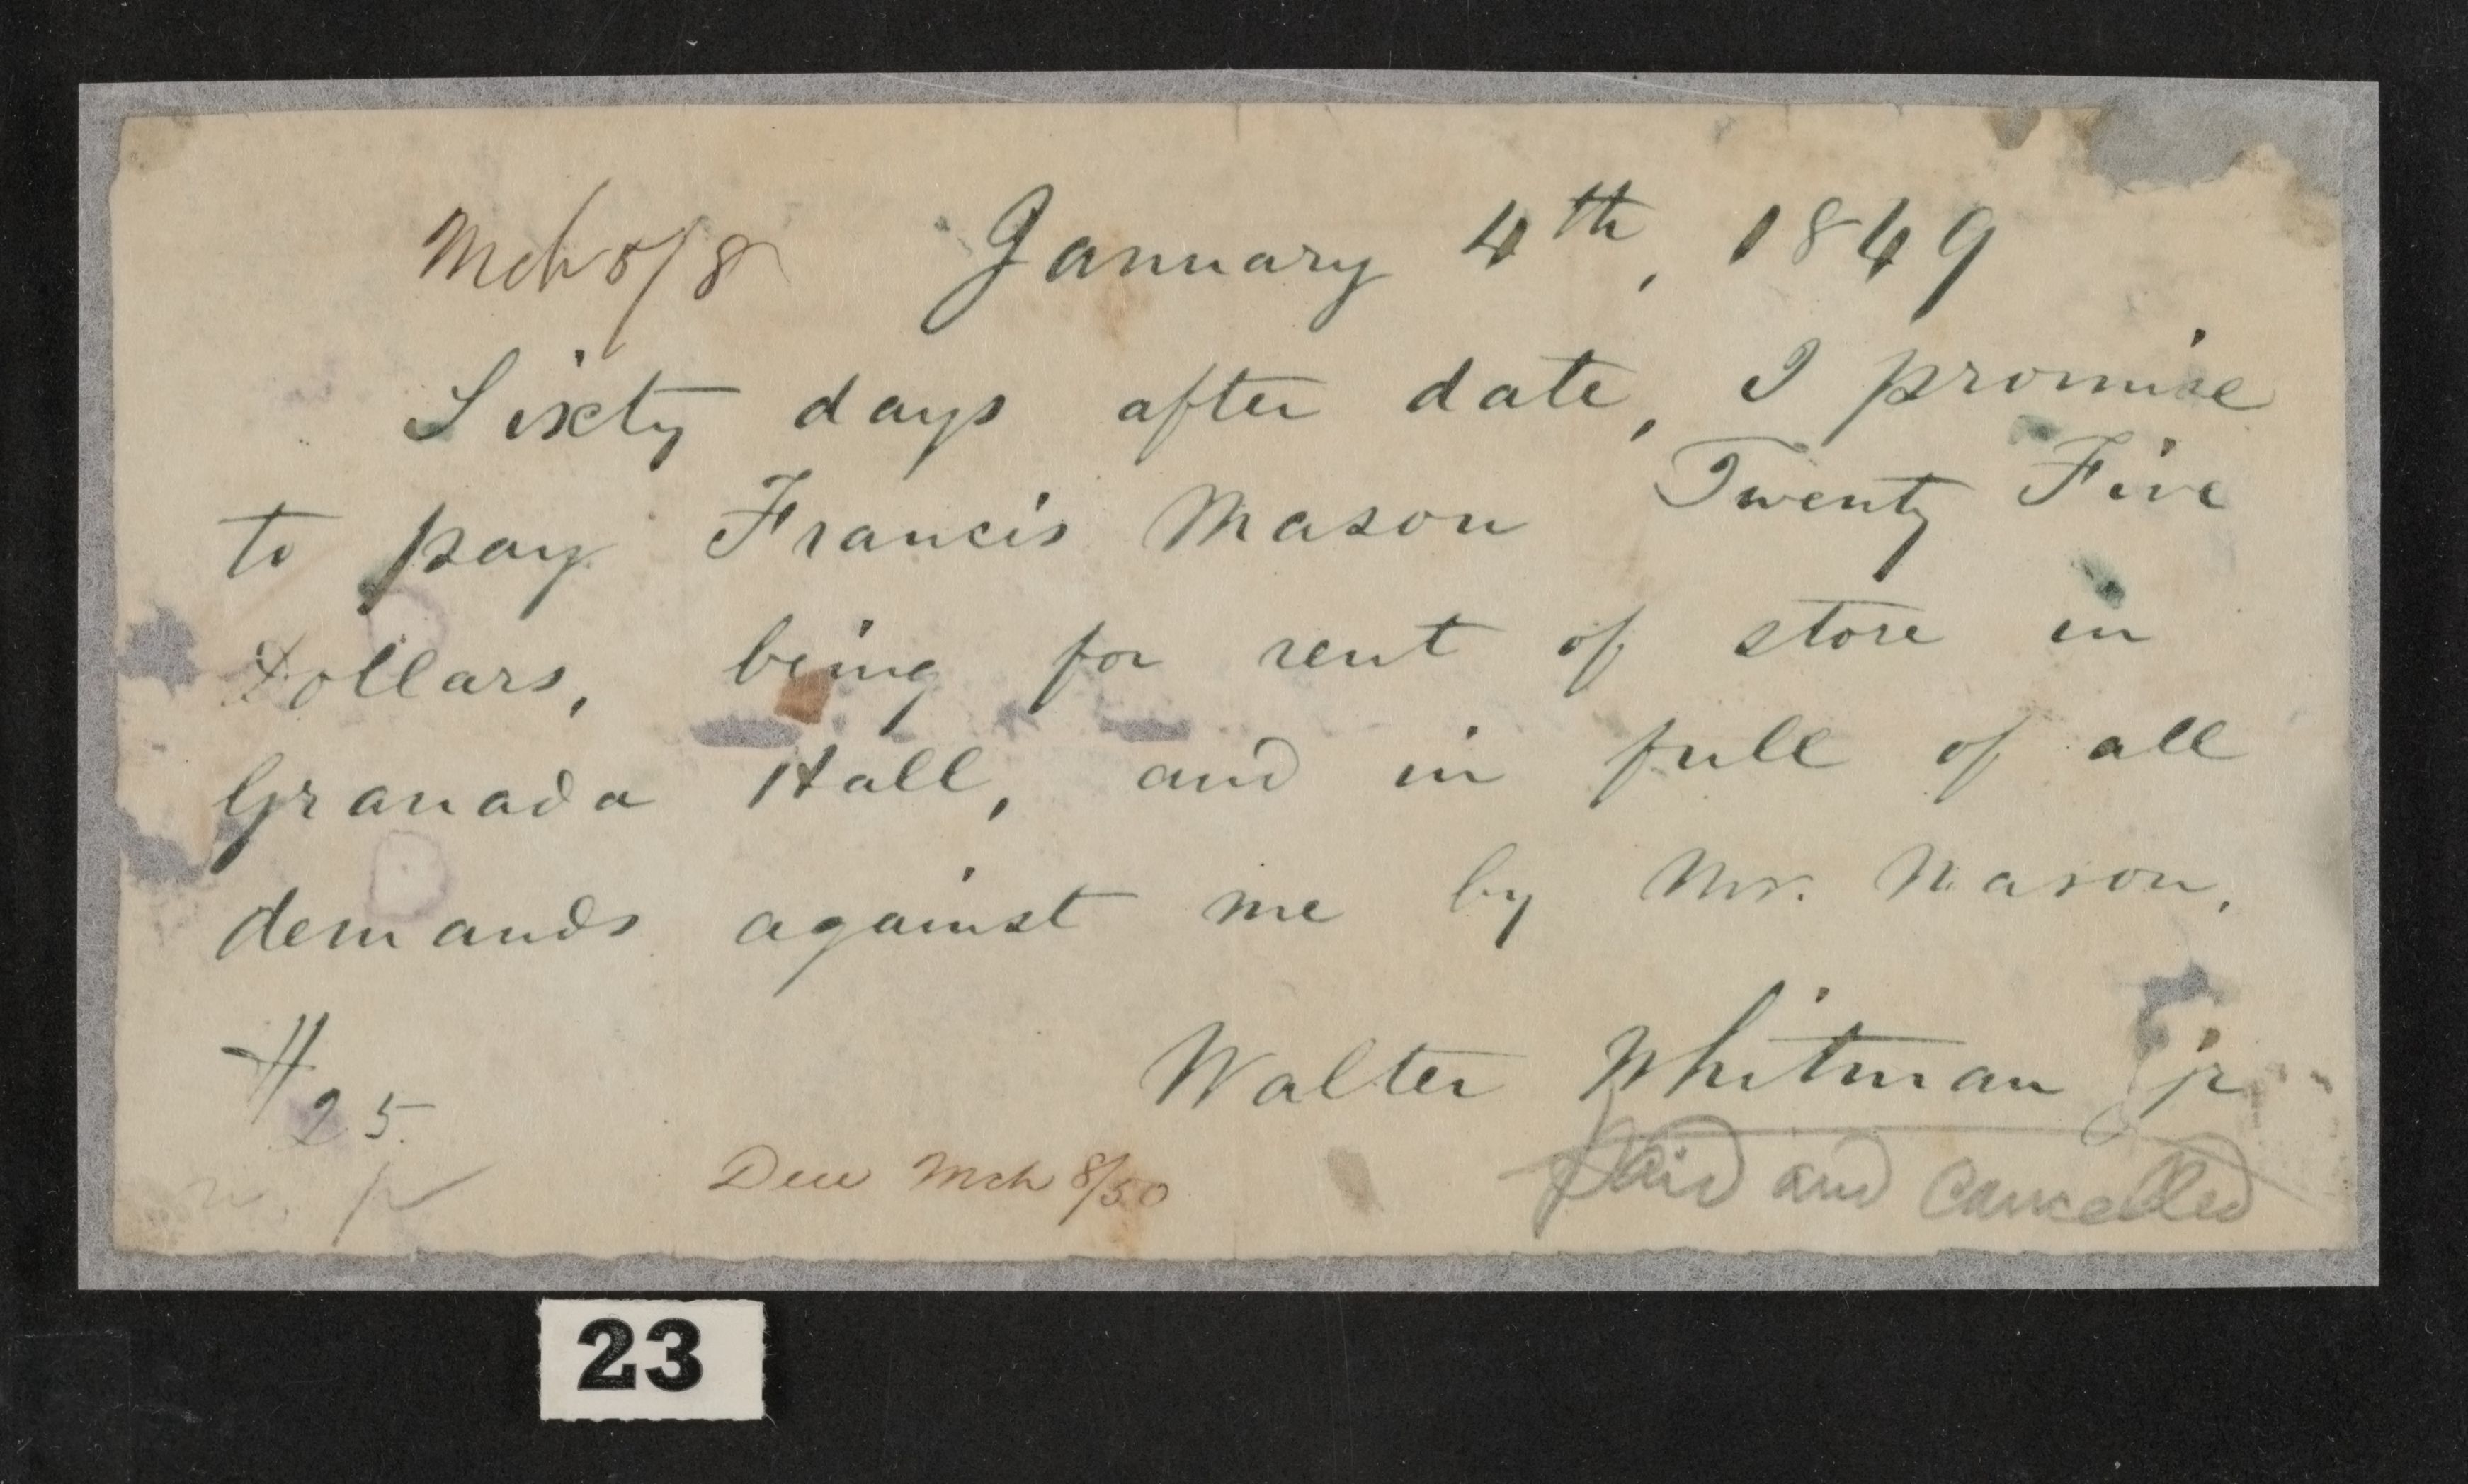 Mch 5/8 January 4th, 1849
Sixty days after date, I promise
to pay Francis Mason Twenty Five
Dollars, being for rent of store in
Granada Hall, and in full of all
demands against me by Mr. Mason.
$25. Walter Whitman jr
Due Mch 8/50 Paid and Cancelled
23